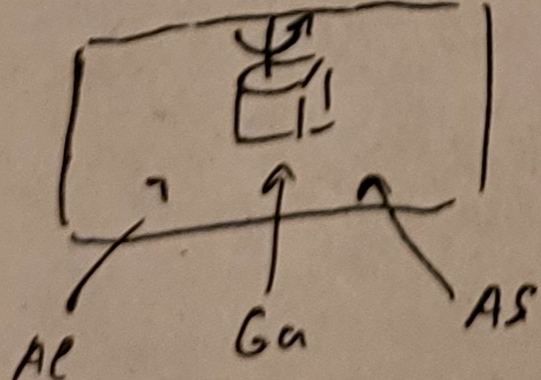 Al
Ga
As